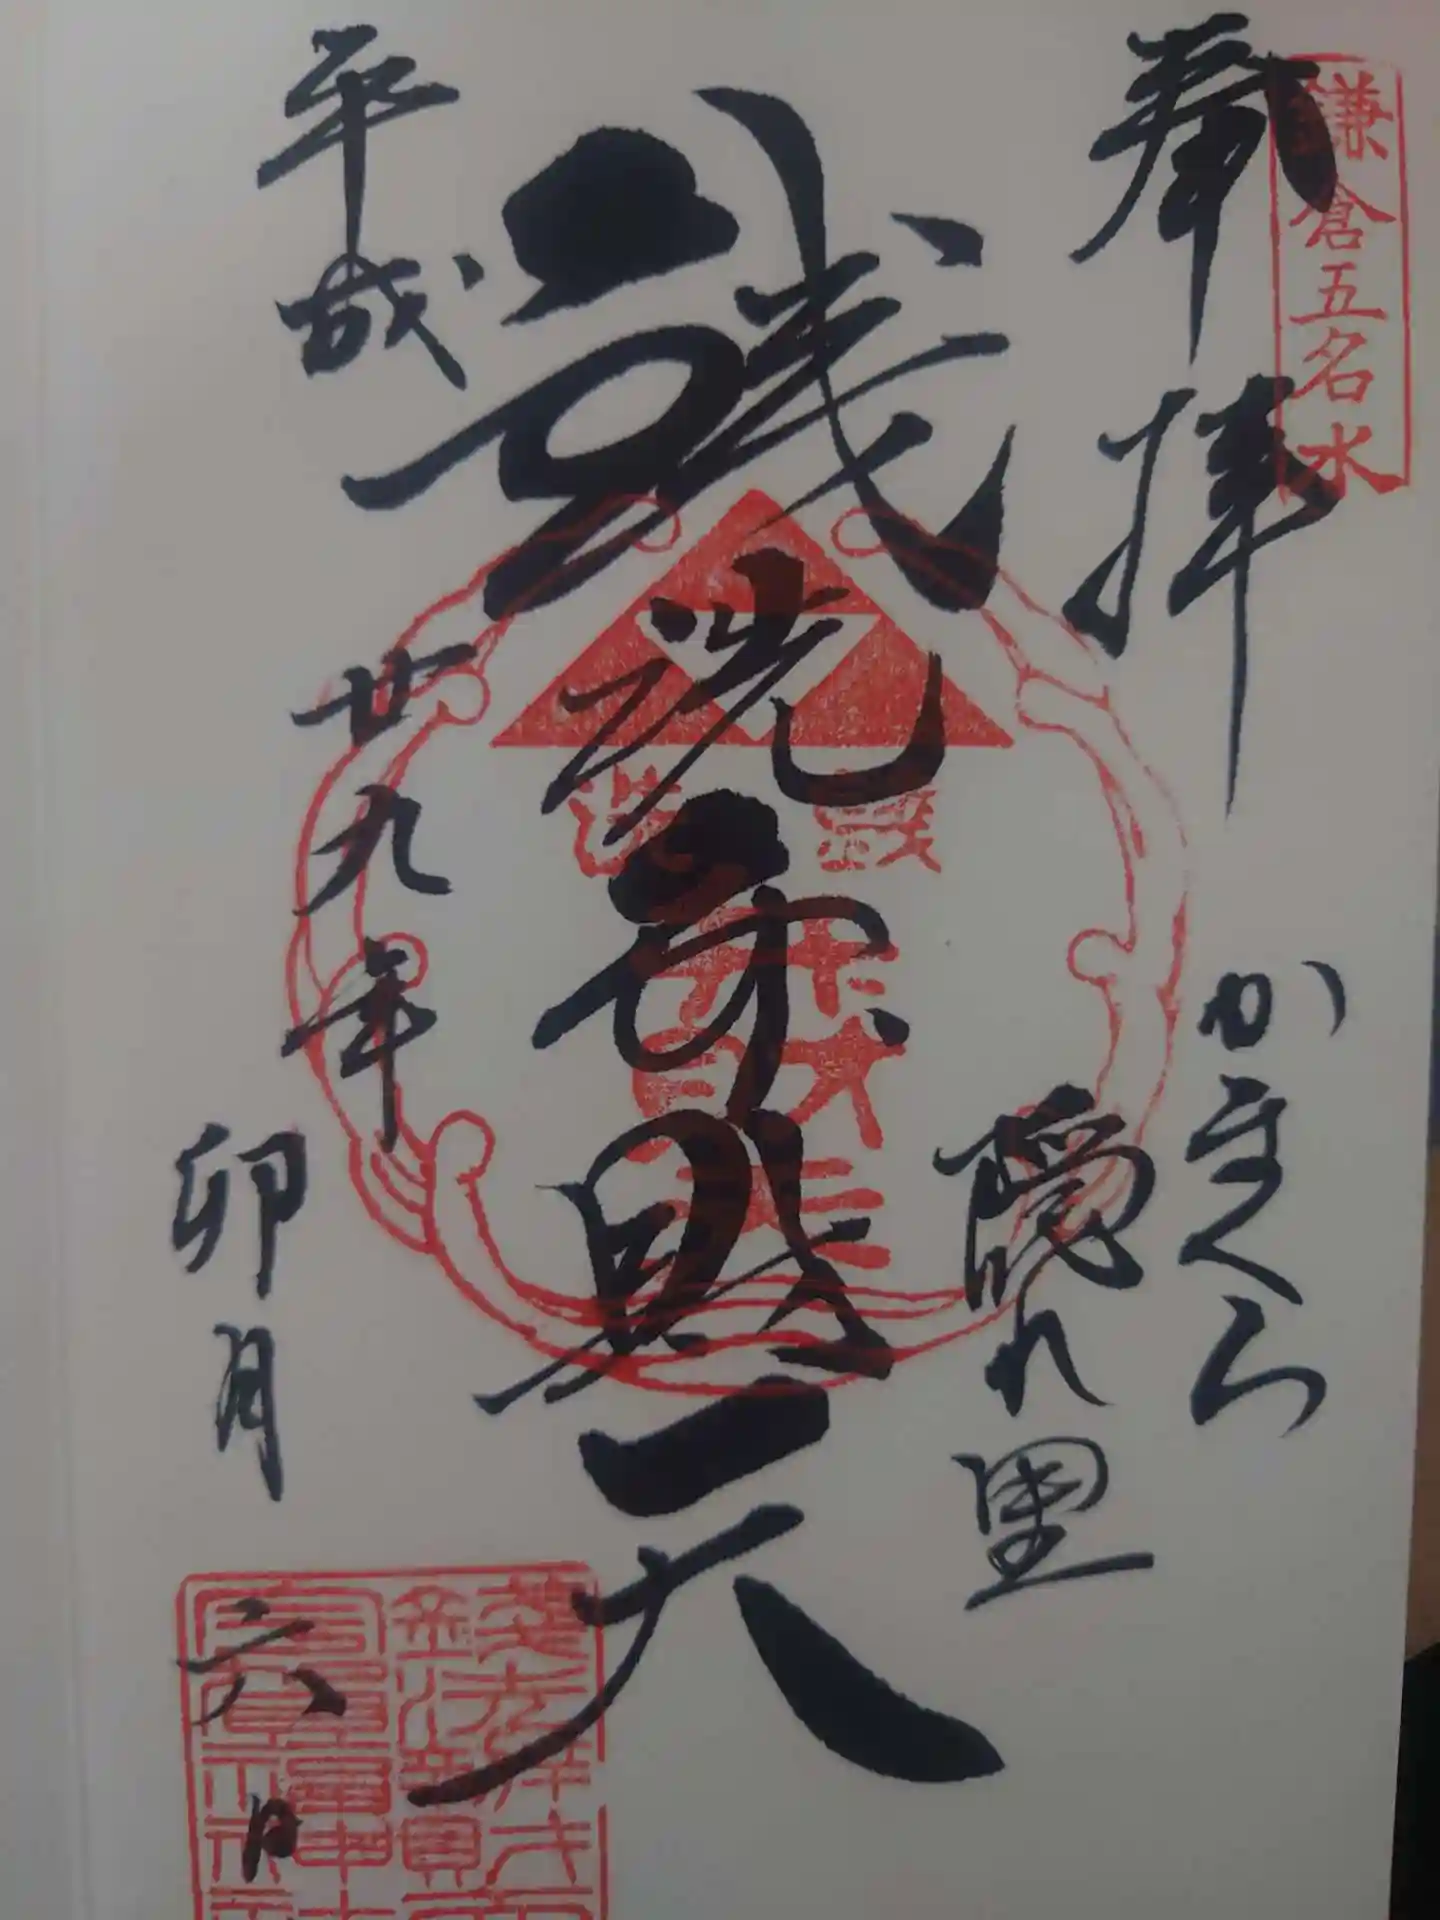 鎌倉五名水
奉拝
かまくら
隠れ里
銭洗弁財天
平成廿九年
卯月六日
銭洗
弁財天